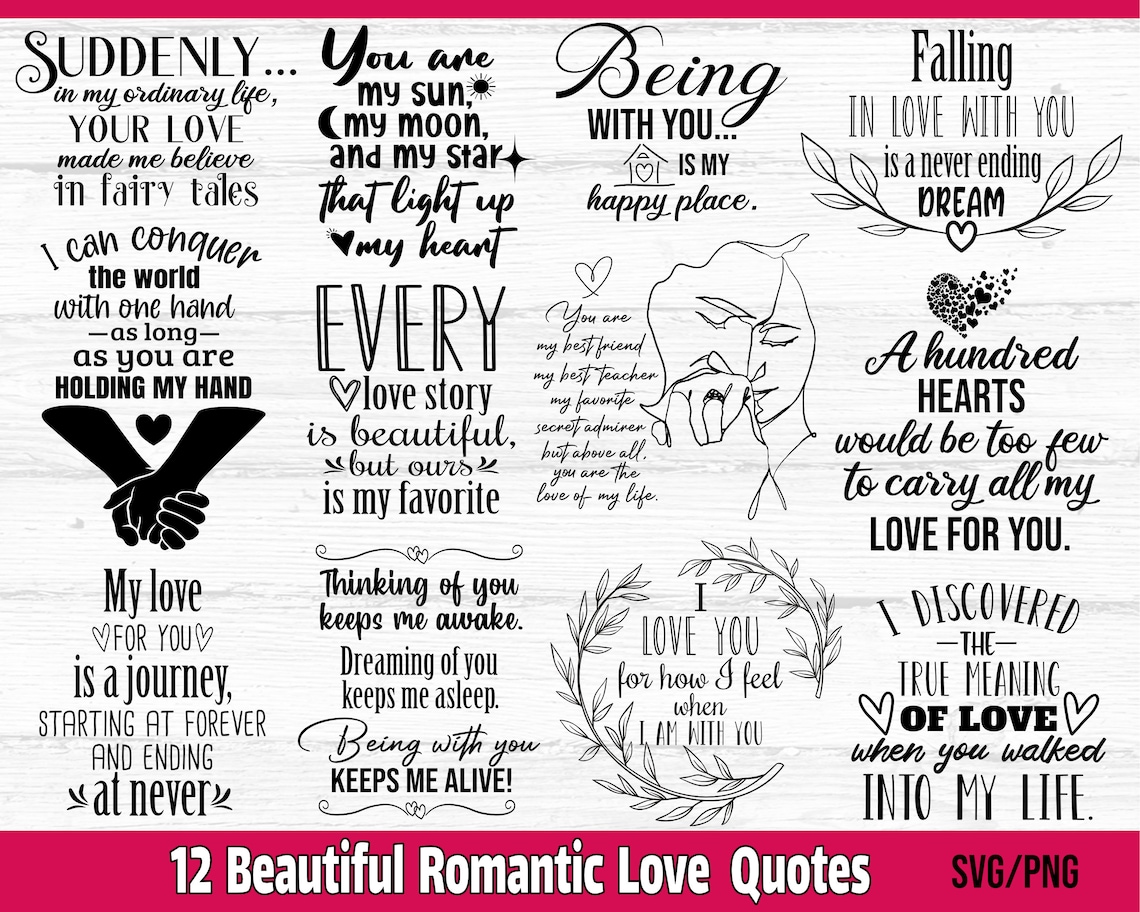 SUDDENLY...
in my ordinary life,
YOUR LOVE
made me believe
in fairy tales
You are
my sun,
my moon,
and my star
that light up
my heart
Being
WITH YOU...
IS MY
happy place.
Falling
IN LOVE WITH YOU
is a never ending
DREAM
I can conquer
the world
with one hand
—as long—
as you are
HOLDING MY HAND
EVERY
love story
is beautiful,
but ours
is my favorite
You are
my best friend
my best teacher
my favorite
secret admirer
but above all,
you are the
love of my life.
A hundred
HEARTS
would be too few
to carry all my
LOVE FOR YOU.
My love
FOR YOU
is a journey,
STARTING AT FOREVER
AND ENDING
at never
Thinking of you
keeps me awake.
Dreaming of you
keeps me asleep.
Being with you
KEEPS ME ALIVE!
I
LOVE YOU
for how I feel
when
I AM WITH YOU
I DISCOVERED
—THE—
TRUE MEANING
OF LOVE
when you walked
INTO MY LIFE.
12 Beautiful Romantic Love Quotes
SVG/PNG